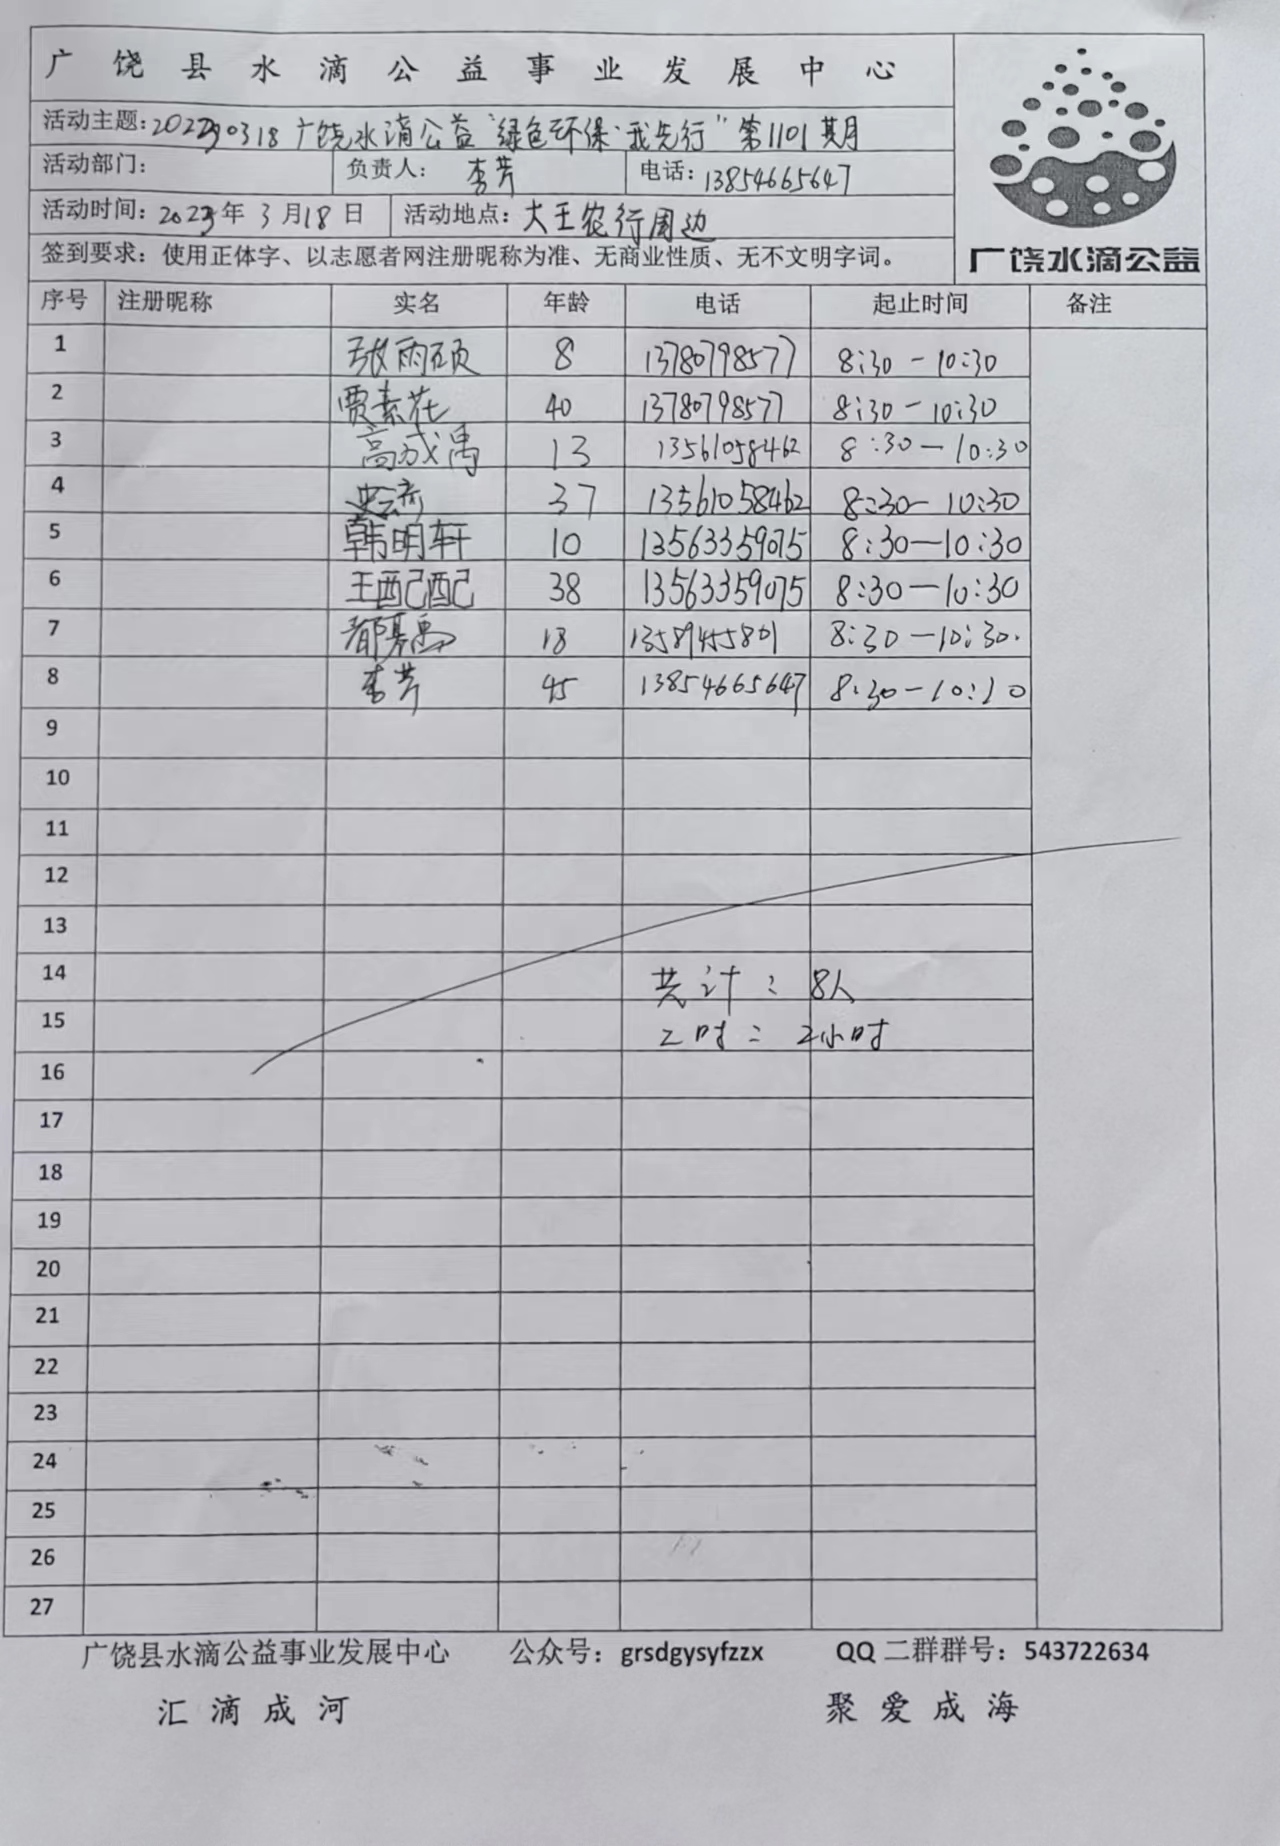 广饶县水滴公益事业发展中心
活动主题:20230318广饶水滴公益“绿色环保·我先行”第1101期
活动部门: 负责人: 李芳 电话:13854665647
活动时间:2023年3月18日 活动地点:大王农行周边
签到要求:使用正体字、以志愿者网注册昵称为准、无商业性质、无不文明字词。
广饶水滴公益
序号 注册昵称 实名 年龄 电话 起止时间 备注
1 张雨硕 8 13780798577 8:30-10:30
2 贾素花 40 13780798577 8:30-10:30
3 高成禹 13 13561058462 8:30-10:30
4 37 13561058462 8:30-10:30
5 韩明轩 10 13563359075 8:30-10:30
6 王配配 38 13563359075 8:30-10:30
7 18 13589455801 8:30-10:30.
8 李芳 45 13854665647 8:30-10:30
9
10
11
12
13
14 共计:8人
15 工时:2小时
16
17
18
19
20
21
22
23
24
25
26
27
广饶县水滴公益事业发展中心 公众号:grsdgysyfzzx QQ二群群号:543722634
汇滴成河 聚爱成海